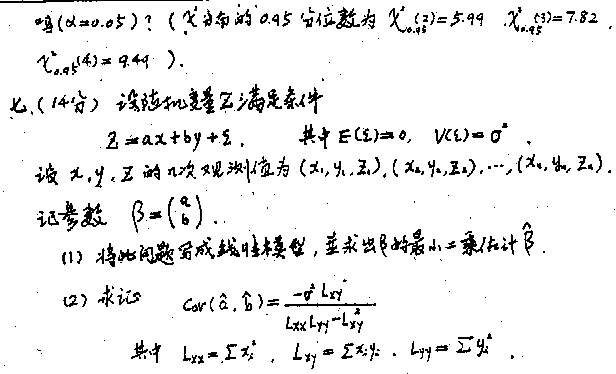 吗(α=0.05)？(χ²分布的0.95分位数为 χ²₀.₉₅(2)=5.99 χ²₀.₉₅(3)=7.82,
χ²₀.₉₅(4)=9.49).
七.(14分) 设随机变量Z满足条件
Z=ax+by+ε, 其中 E(ε)=0, V(ε)=σ².
设 x,y,Z 的n次观测值为 (x₁,y₁,Z₁),(x₂,y₂,Z₂),…,(xₙ,yₙ,Zₙ).
记参数 β=(a b).
(1) 将此问题写成线性模型,并求出β的最小二乘估计β̂.
(2) 求证 Cov(â,b̂)=−σ²Lxy/(LxxLyy−Lxy²)
其中 Lxx=Σxᵢ², Lxy=Σxᵢyᵢ, Lyy=Σyᵢ².